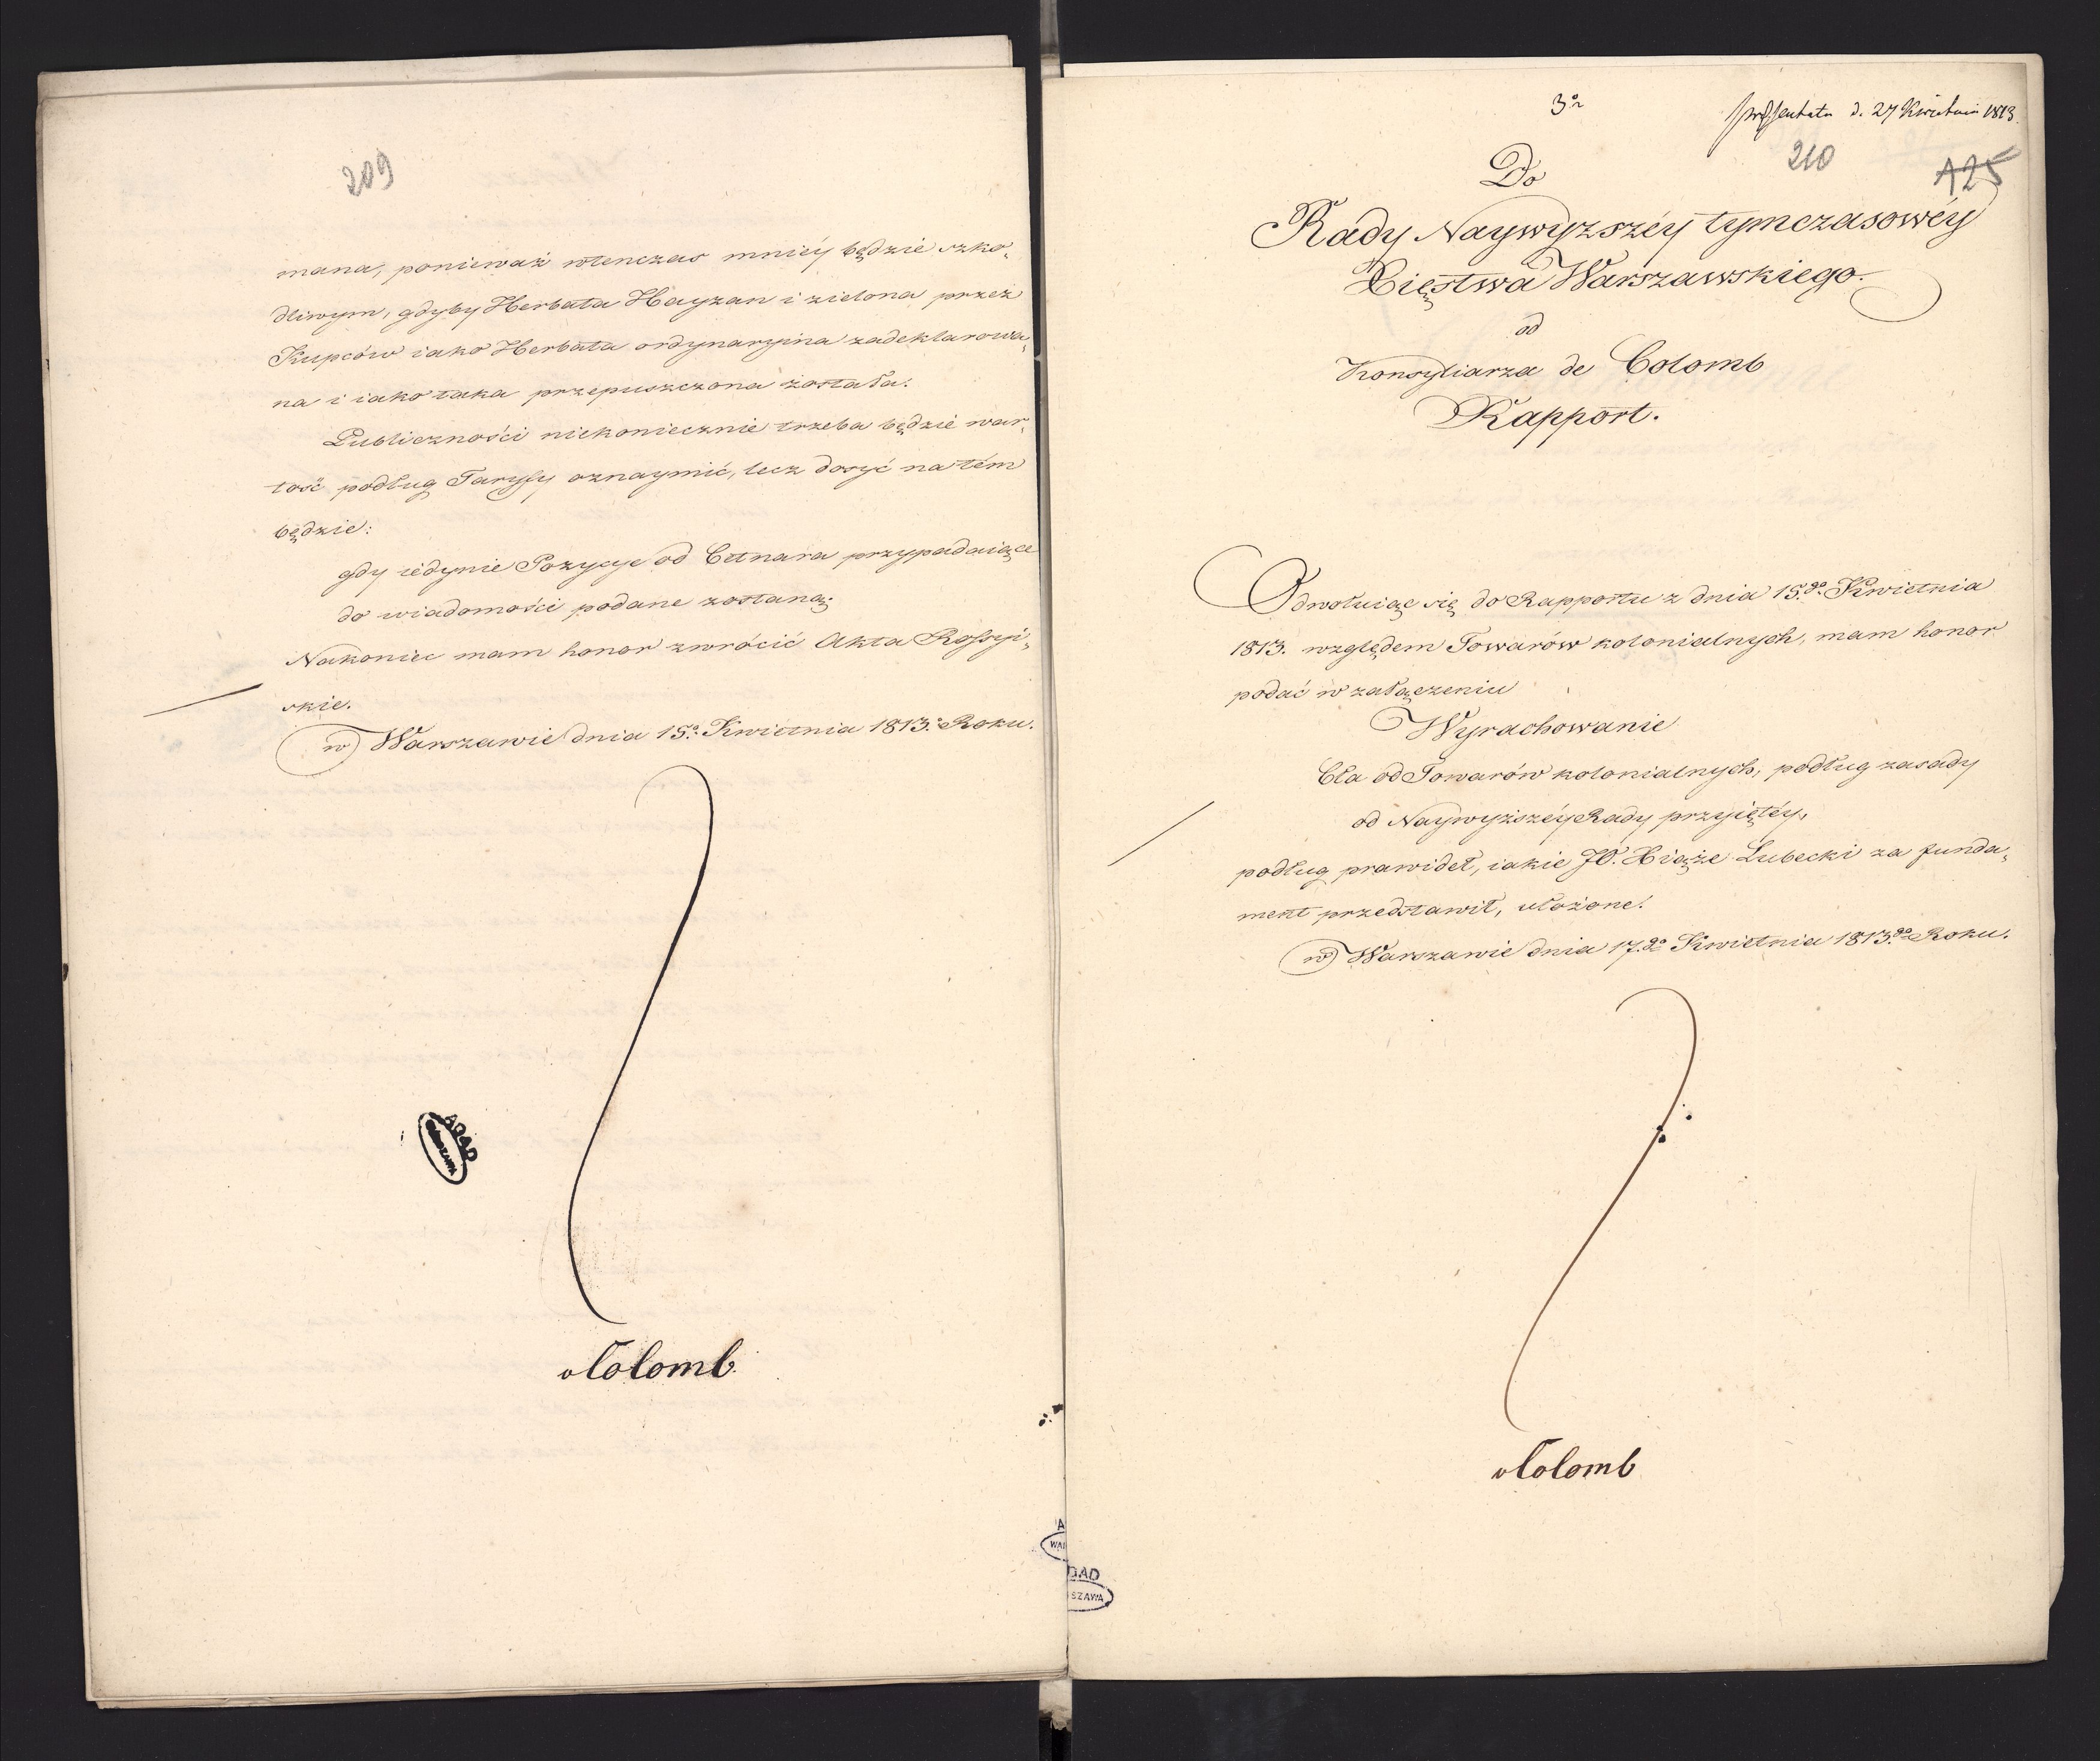 209
mana, ponieważ wtenczas mniéy będzie szko„
dliwym, gdyby Herbata Hayzan i zielona przez
Kupców iako Herbata ordynaryina zadeklarowa„
na i iako taka przepuszczona została.
Publiczności niekoniecznie trzeba będzie war„
tość podług Taryffy oznaymić, lecz dosyć na tém
będzie:
gdy iedynie Pozycye od Cetnara przypadaiące
do wiadomości podane zostaną;
Nakoniec mam honor zwrócić Akta Rossyi„
skie.
w Warszawie dnia 15.º Kwietnia 1813.º Roku.
Colomb
ADAD
WARSZAWA
3º
præsentata d. 27 Kwietnia 1813.
210
A25
Do
Rady Naywyższéy tymczasowéy
Xięstwa Warszawskiego.
od
Konsyliarza de Colomb
Rapport.
Odwołuiąc się do Rapportu z dnia 15.go Kwietnia
1813. względem Towarów kolonialnych, mam honor
podać w załączeniu
Wyrachowanie
Cła od Towarów kolonialnych, podług zasady
od Naywyższéy Rady przyiętéy,
podług prawideł, iakie JO. Xiąże Lubecki za funda„
ment przedstawił, ułożone.
w Warszawie dnia 17.go Kwietnia 1813.go Roku.
Colomb
A
WAR
DAD
SZAWA